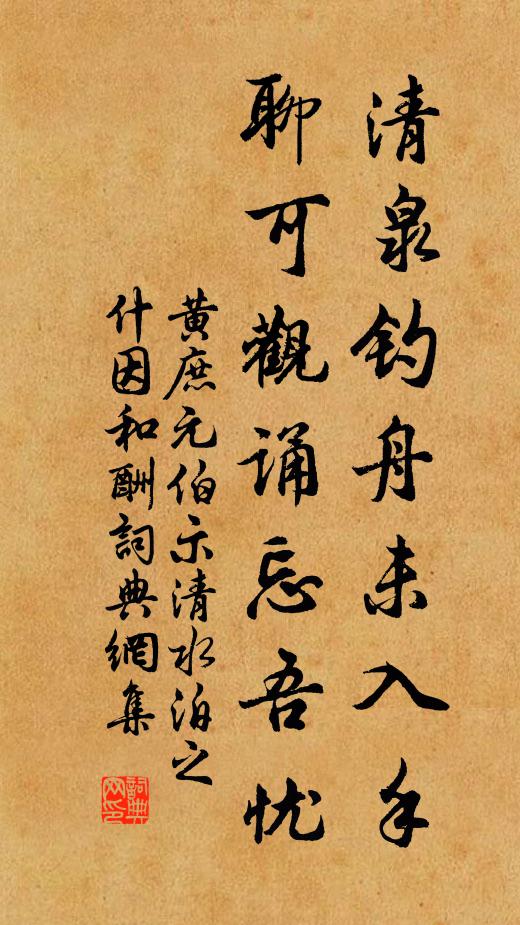 清泉钓舟未入手
聊可觀诵忘吾忧
黄庶元伯示清水泊之
什因和酬詞典網集
詞典网印